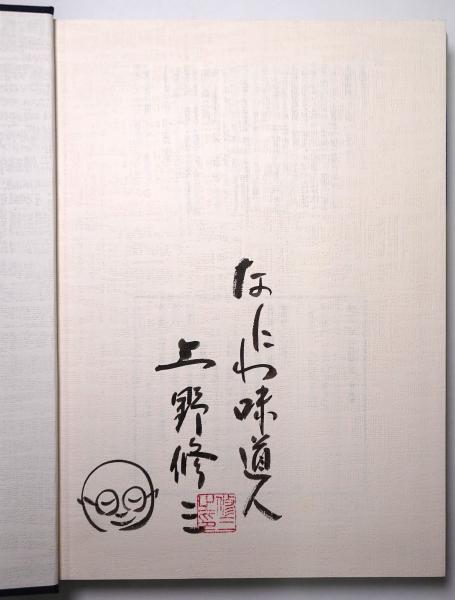 なにわ味道人
上野修三